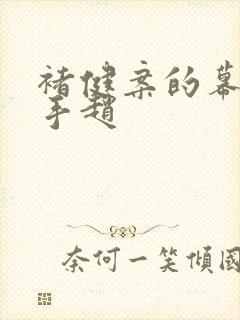 褚健案的幕
手趙
奈何一笑傾國